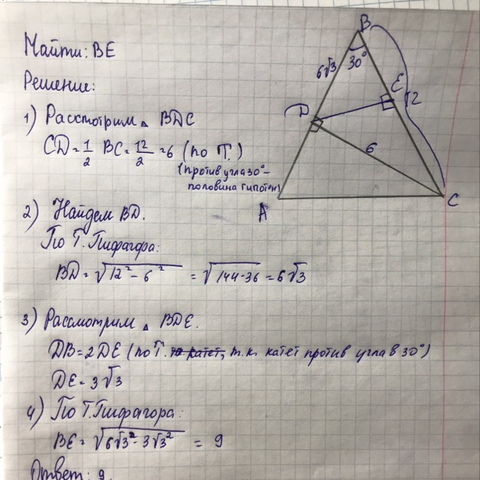 Найти: BE
Решение:
1) Рассмотрим △ BDC
CD = 1/2 BC = 12/2 = 6 (по Т.)
(против угла 30° -
половина гипотен)
2) Найдем BD.
По Т. Пифагора:
BD = √(12² - 6²) = √(144-36) = 6√3
3) Рассмотрим △ BDE.
DB = 2DE (по Т. т.к. катет против угла в 30°)
DE = 3√3
4) По Т. Пифагора:
BE = √(6√3² - 3√3²) = 9
Ответ: 9.
B
6√3
30°
E
12
D
6
A
C